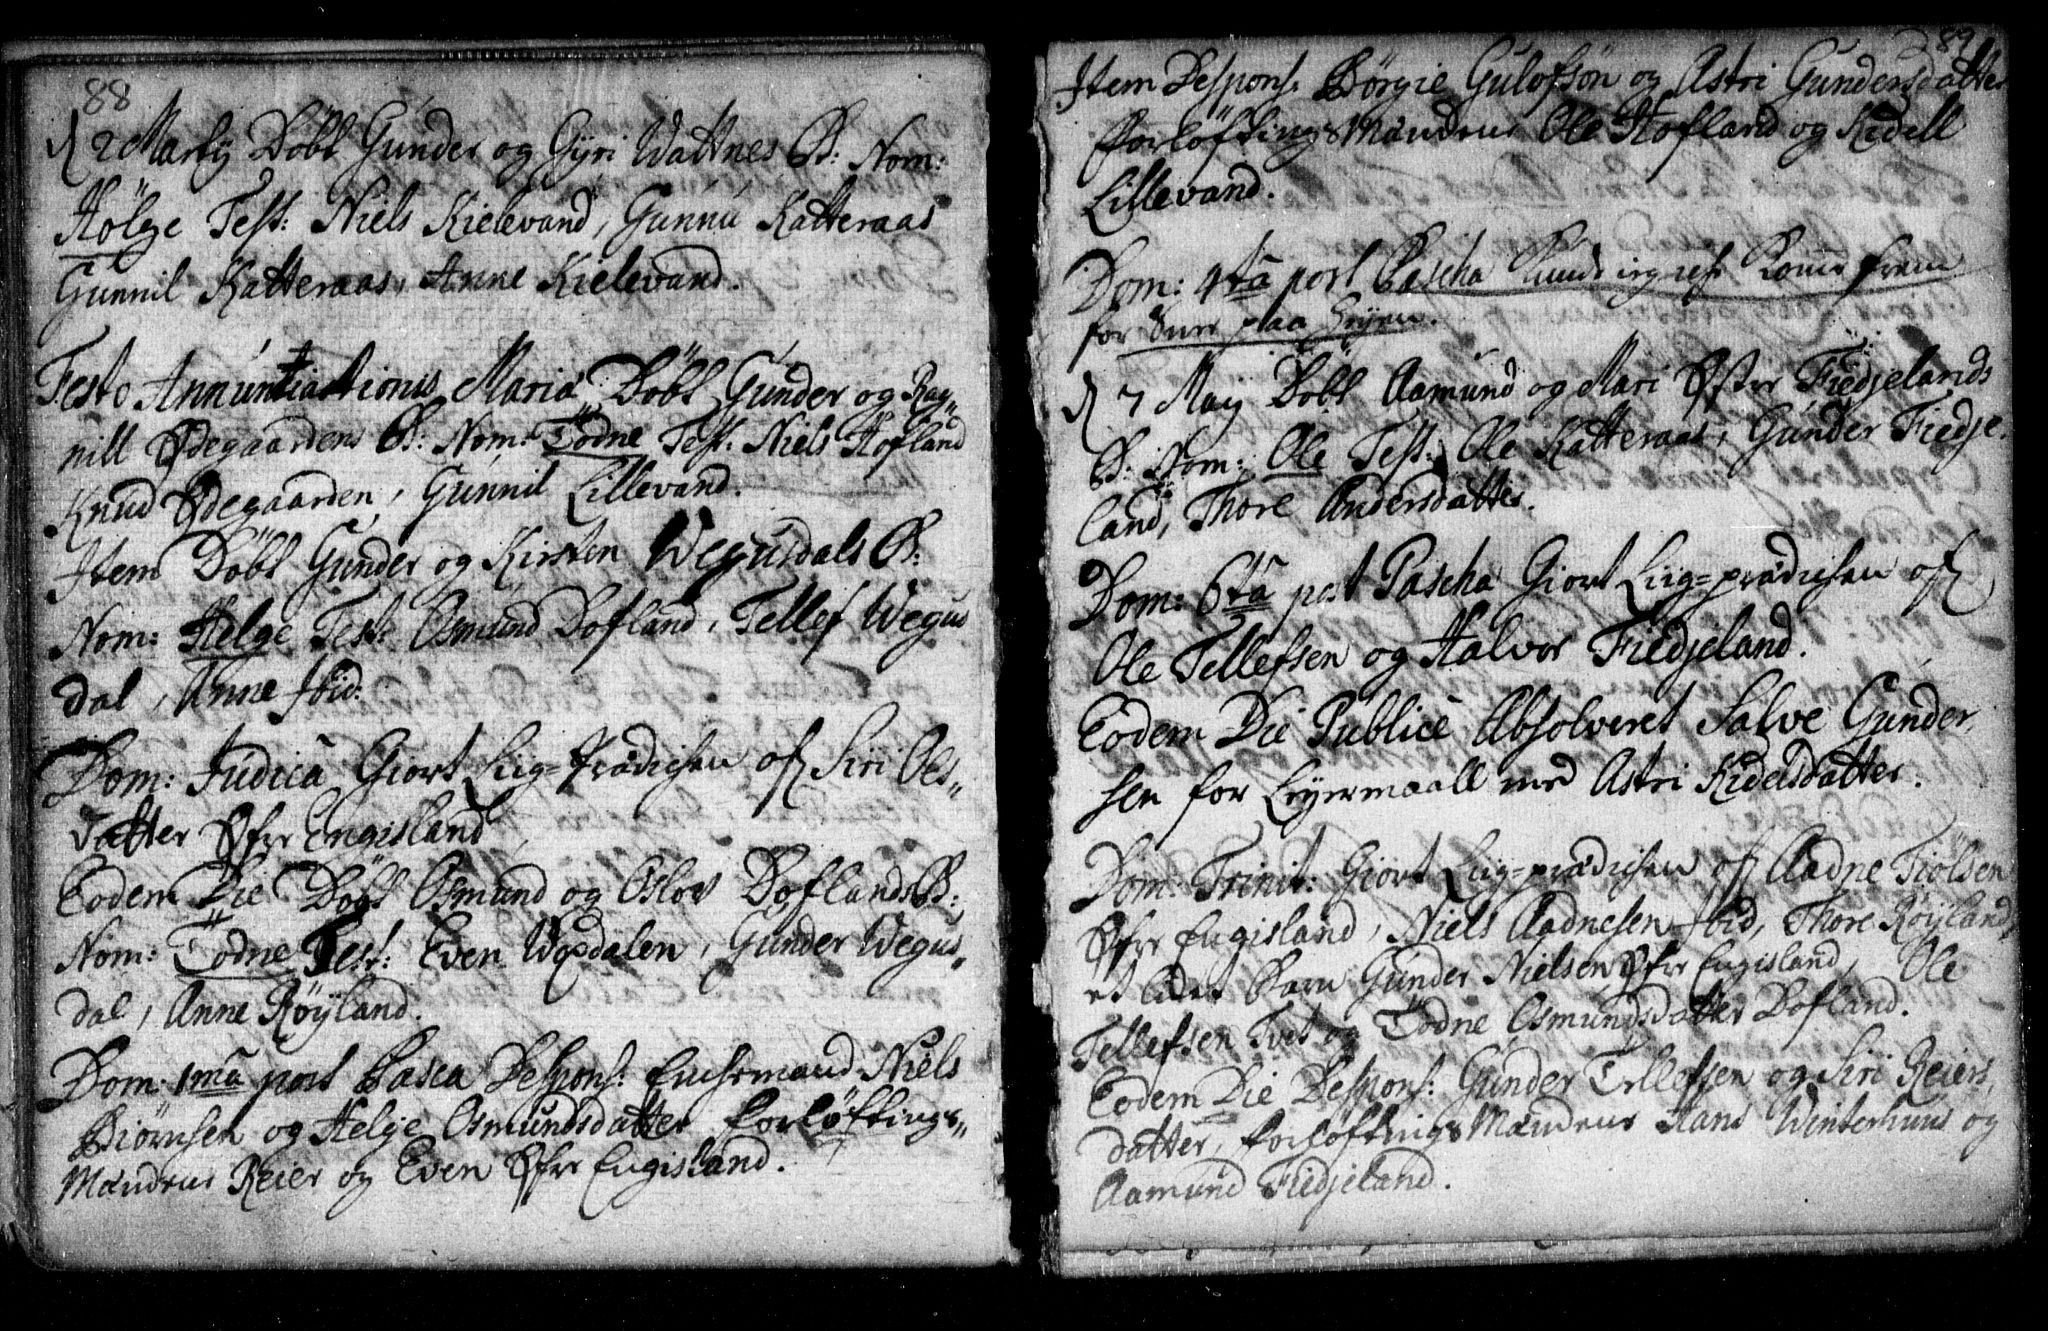 88
d 2 Marty Döbt Gunder og Gyri Wattnes B: Nom:
Hölge Test: Niels Kielevand, Gunnu Katteraas
Gunnil Katteraas, Anne Kielevand.
Festo Annuntiationis Mariæ Döbt Gunder og Rag„
nill Ødegaardens B: Nom: Todne Test: Niels Hofland
Knud Ødegaarden, Gunnil Lillevand.
Item Döbt Gunder og Kirsten Wegusdals B:
Nom: Helge Test: Osmund Dofland, Tellef Wegus
dal, Anne ibid:
Dom: Judica Giort Liig=Prædichen of Siri Ols„
datter Øfre Engisland
Eodem Die Döbt Osmund og Oslov Doflands B:
Nom: Todne Test: Even Woxdalen, Gunder Wegus„
dal, Anne Röyland.
Dom: 1ma post Pasca Despons: Enchemand Niels
Biörnsen og Helge Osmundsdatter Forløftnings„
Mændene Reier og Even Øfre Engisland.
89
Item Despons: Börgie Gulofsön og Astri Gundersdatter
Forlöftnings Mændene Ole Hofland og Kidell
Lillevand.
Dom: 4ta post Pascha
for paa
d 7 May Döbt Aamund og Mari Øster Fiedjelands
B: Nom: Ole Test: Ole Katteraas, Gunder Fiedje„
land, Thore Andersdatter.
Dom: 6ta post Pascha Giort Liig=prædichen of
Ole Tellefsen og Halvor Fiedjeland.
Eodem Die Publicè Absolveret Salve Gunder„
sen for Leyermaall med Astri Kidelsdatter.
Dom: Trinit: Giort Liig=prædichen of Aadne Tiölsen
Øfre Engisland, Niels Aadnesen ibid, Thore Röyland,
et lidet Barn Gunder Nielsen Øfre Engisland, Ole
Tellefsen Tvet og Todne Osmundsdatter Dofland.
Eodem Die Despons: Gunder Tellefsen og Siri Reiers„
datter, Forlöftnings Mændene Hans Winterhuus og
Aamund Fiedjeland.